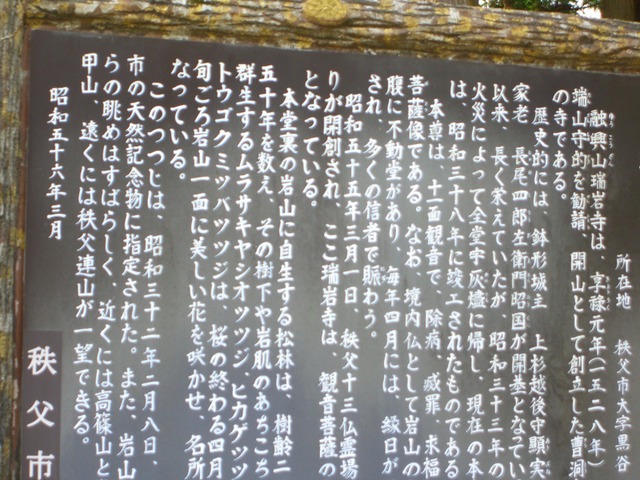 所在地 秩父市大字黒谷
融興山瑞岩寺は、享禄元年(一五二八年)
端山守的を勧請、開山として創立した曹洞
の寺である。
歴史的には、鉢形城主 上杉越後守顕実
家老 長尾四郎左衛門昭国が開基となってい
以来 長く栄えていたが、昭和三十三年の
火災によって全堂宇灰燼に帰し、現在の本
は、昭和三十八年に竣工されたものである
本尊は、十一面観音で、除病、滅罪、求福
菩薩像である。なお、境内仏として岩山の
腹に不動堂があり、毎年四月には、縁日が
され、多くの信者で賑わう。
昭和五十五年三月一日、秩父十三仏霊場
りが開創され、ここ瑞岩寺は、観音菩薩の
となっている。
本堂裏の岩山に自生する松林は、樹齢二
五十年を数え、その樹下や岩肌のあちこち
群生するムラサキヤシオツツジ、ヒカゲツツ
トウゴクミツバツツジは、桜の終わる四月
旬ごろ岩山一面に美しい花を咲かせ、名所
なっている。
このつつじは、昭和三十二年二月八日、
市の天然記念物に指定された。また、岩山
らの眺めはすばらしく、近くには高篠山と
甲山、遠くには秩父連山が一望できる。
昭和五十六年三月
秩父市